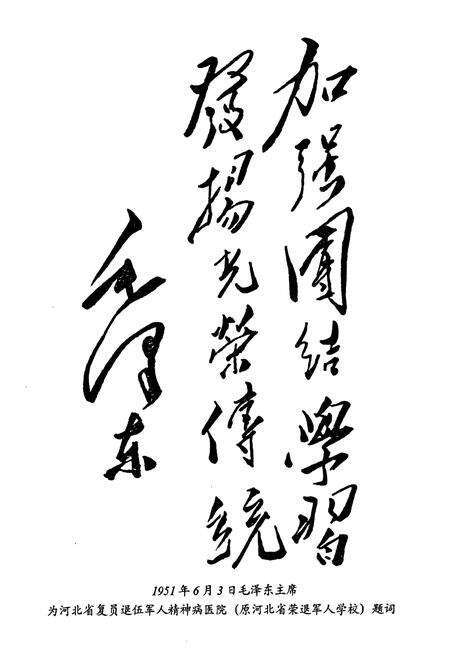 加强團结學習
發揚光榮傳統
毛泽东
1951年6月3日毛泽东主席
为河北省复员退伍军人精神病医院（原河北省荣退军人学校）题词